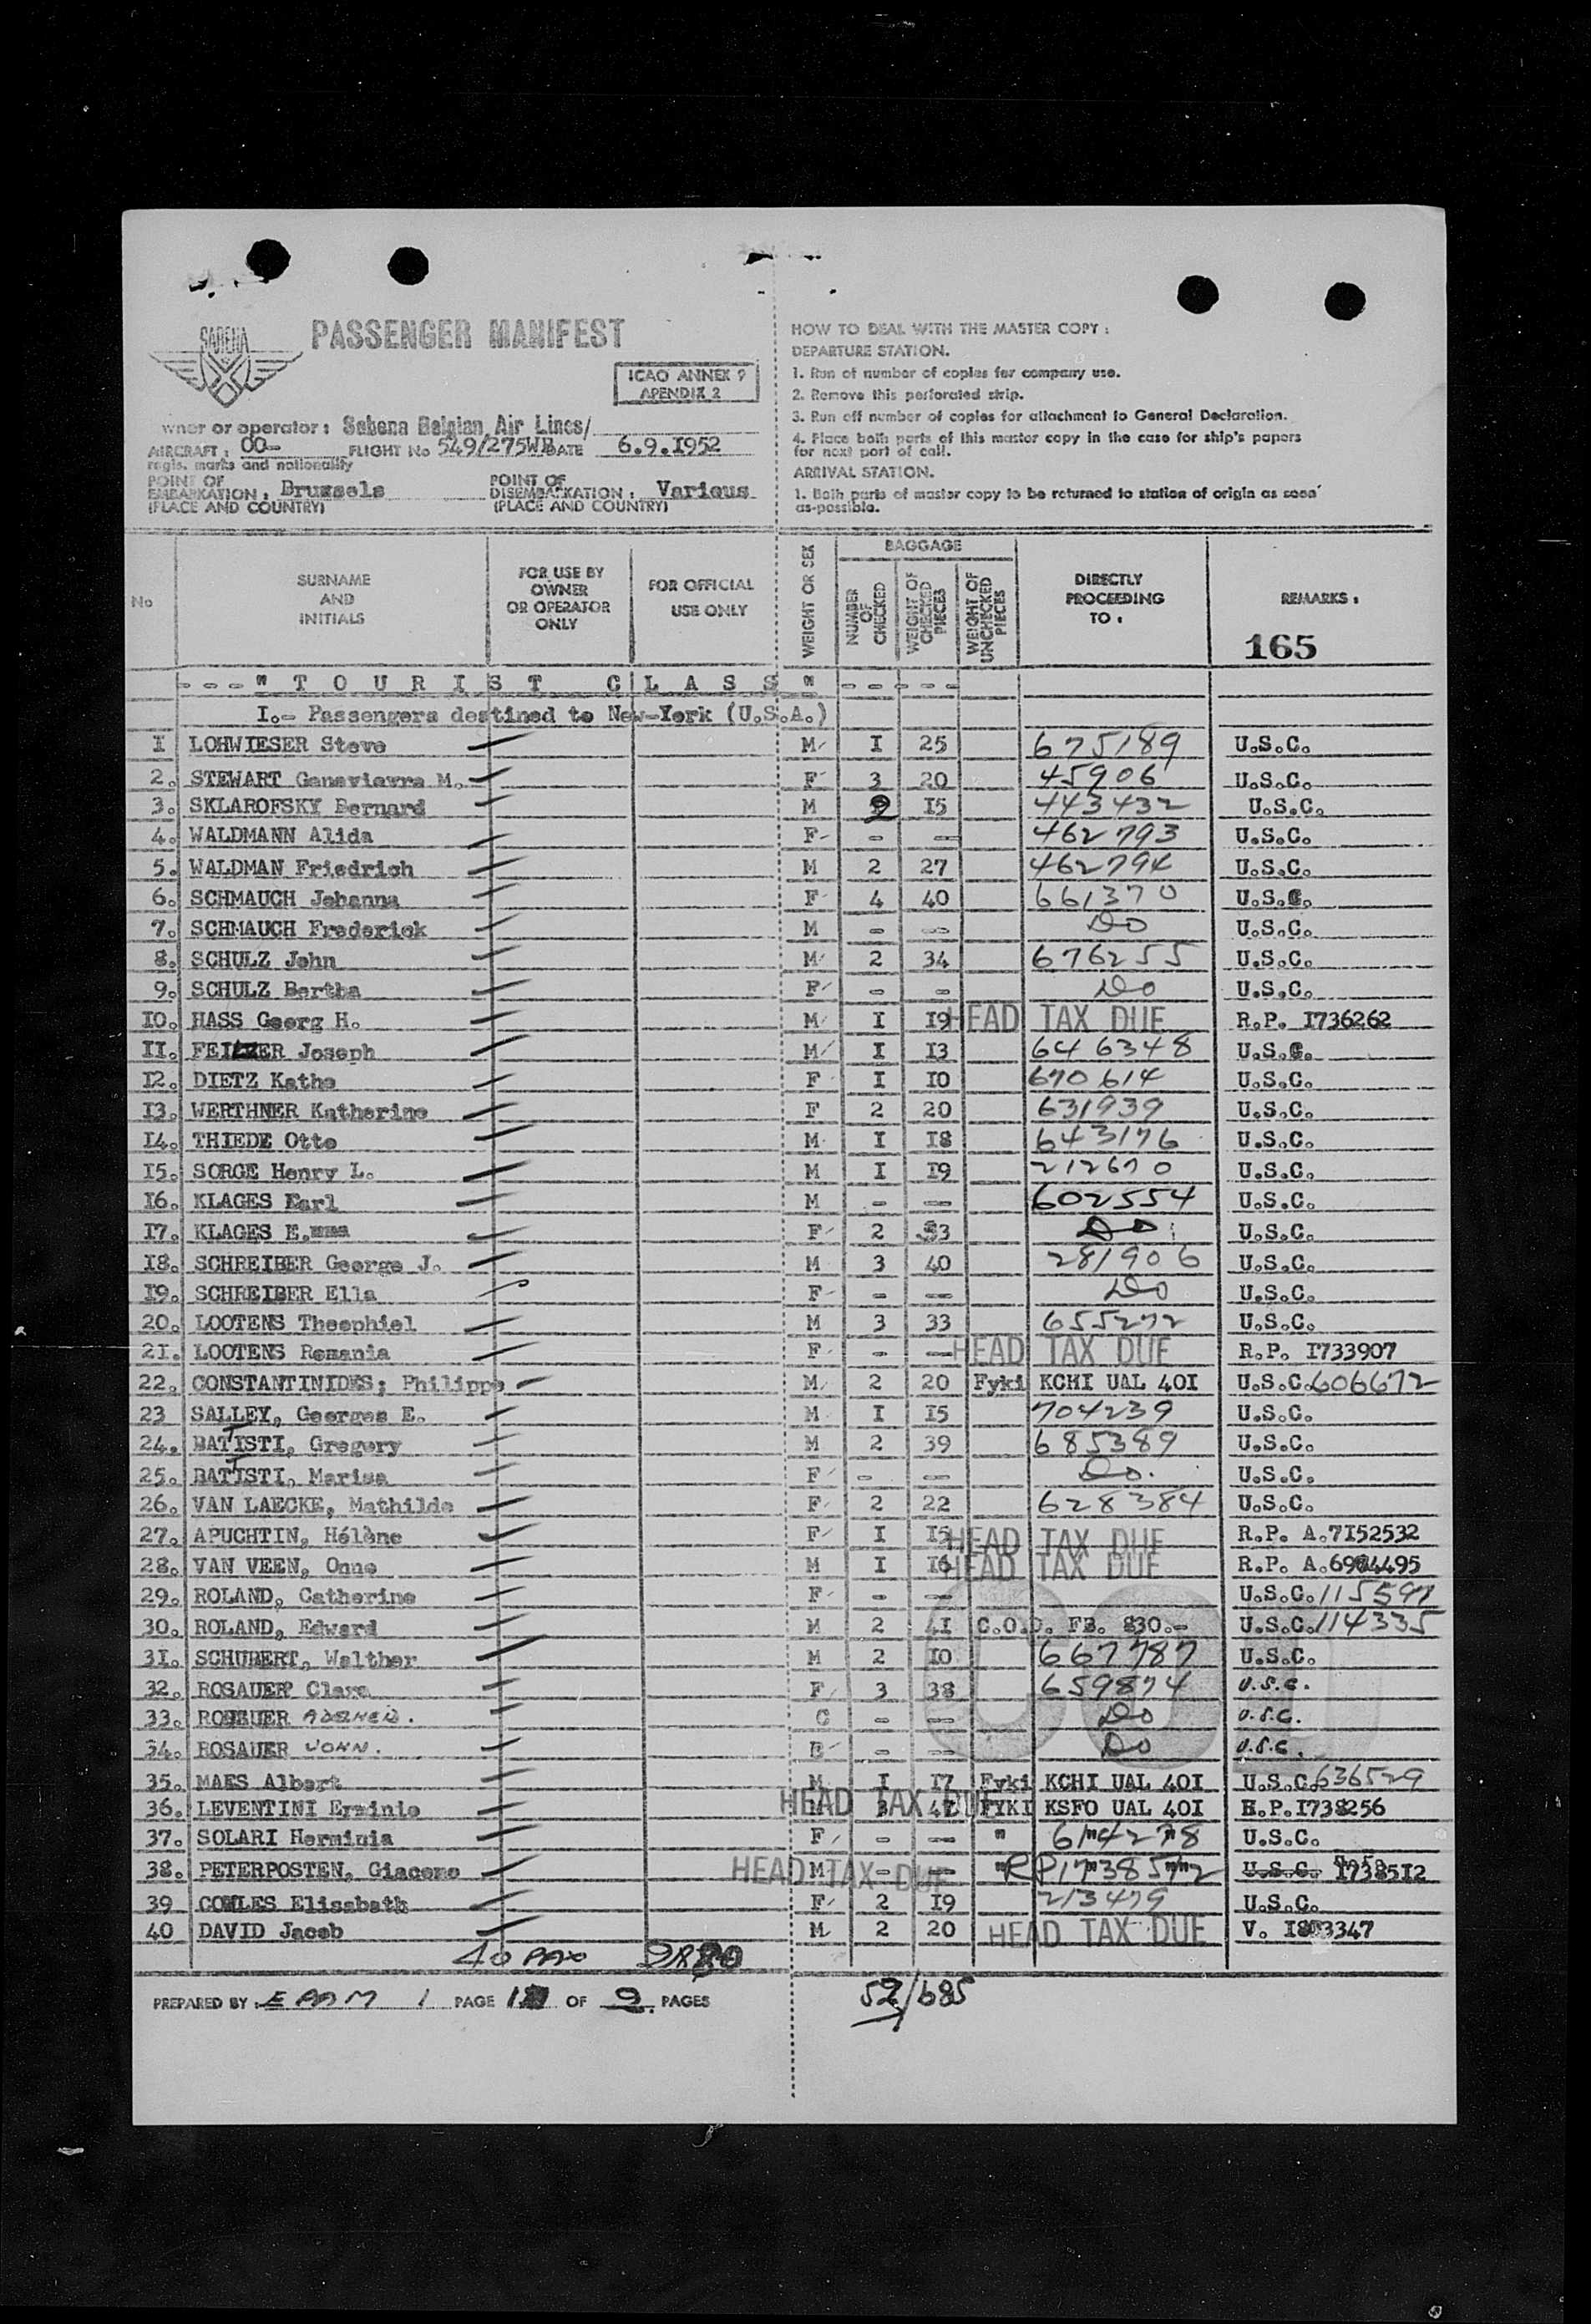 SABENA
PASSENGER MANIFEST
ICAO ANNEX 9
APENDIX 2
wner or operator : Sabena Belgian Air Lines/
AIRCRAFT : OO- FLIGHT No 549/275WB DATE 6.9.I952
regis. marks and nationality
POINT OF EMBARKATION : Brussels POINT OF DISEMBARKATION : Various
(PLACE AND COUNTRY) (PLACE AND COUNTRY)
HOW TO DEAL WITH THE MASTER COPY :
DEPARTURE STATION.
1. Run of number of copies for company use.
2. Remove this perforated strip.
3. Run off number of copies for attachment to General Declaration.
4. Place both parts of this master copy in the case for ship's papers
for next port of call.
ARRIVAL STATION.
1. Both parts of master copy to be returned to station of origin as soon
as-possible.
No SURNAME AND INITIALS FOR USE BY OWNER OR OPERATOR ONLY FOR OFFICIAL USE ONLY WEIGHT OR SEX BAGGAGE NUMBER OF CHECKED WEIGHT OF CHECKED PIECES WEIGHT OF UNCHECKED PIECES DIRECTLY PROCEEDING TO : REMARKS :
165
- - - " T O U R I S T C L A S S " - - - - -
I.- Passengers destined to New-York (U.S.A.)
I LOHWIESER Steve M I 25 675189 U.S.C.
2. STEWART Genevievre M. F 3 20 45906 U.S.C.
3. SKLAROFSKY Bernard M 2 I5 443432 U.S.C.
4. WALDMANN Alida F - - 462793 U.S.C.
5. WALDMAN Friedrich M 2 27 462794 U.S.C.
6. SCHMAUCH Johanna F 4 40 661370 U.S.C.
7. SCHMAUCH Frederick M - - Do U.S.C.
8. SCHULZ John M 2 34 676255 U.S.C.
9. SCHULZ Bertha F - - Do U.S.C.
I0. HASS Georg H. M I I9 HEAD TAX DUE R.P. I736262
II. Joseph M I I3 646348 U.S.C.
I2. DIETZ Kathe F I I0 670614 U.S.C.
I3. WERTHNER Katherine F 2 20 631939 U.S.C.
I4. THIEDE Otto M I I8 643176 U.S.C.
I5. SORGE Henry L. M I I9 212670 U.S.C.
I6. KLAGES Earl M - - 602554 U.S.C.
I7. KLAGES E. F 2 33 Do U.S.C.
I8. SCHREIBER George J. M 3 40 281906 U.S.C.
I9. SCHREIBER Ella F - - Do U.S.C.
20. LOOTENS Theophiel M 3 33 655272 U.S.C.
2I. LOOTENS Romania F - - HEAD TAX DUE R.P. I733907
22. CONSTANTINIDES; Philippe M 2 20 Fyki KCHI UAL 40I U.S.C. 606672
23 SALLEY, Georges E. M I I5 704239 U.S.C.
24. BATTISTI, Gregory M 2 39 685389 U.S.C.
25. BATTISTI, Marisa F - - Do. U.S.C.
26. VAN LAECKE, Mathilde F 2 22 628384 U.S.C.
27. APUCHTIN, Hélène F I I5 HEAD TAX DUE R.P. A.7I52532
28. VAN VEEN, Onno M I I6 HEAD TAX DUE R.P. A.6904495
29. ROLAND, Catherine F - - U.S.C. 115597
30. ROLAND, Edward M 2 4I C.O.D. FB. 830.- U.S.C. 114335
3I. SCHUBERT, Walther M 2 I0 667787 U.S.C.
32. ROSAUER Clara F 3 38 659874 U.S.C.
33. ROSAUER C - - Do U.S.C.
34. ROSAUER JOHN. - - Do U.S.C.
35. MAES Albert M I I7 Fyki KCHI UAL 40I U.S.C. 636529
36. LEVENTINI Erminio HEAD TAX DUE FYKI KSFO UAL 40I R.P.I738256
37. SOLARI Herminia F - - " 614278 U.S.C.
38. PETERPOSTEN, Giacomo M - - HEAD TAX DUE " RP1738512 U.S.C. I7385I2
39 COWLES Elisabeth F 2 I9 213479 U.S.C.
40 DAVID Jacob M 2 20 HEAD TAX DUE V. I803347
40 PAX
PREPARED BY : PAGE 1 OF 2 PAGES 52/685